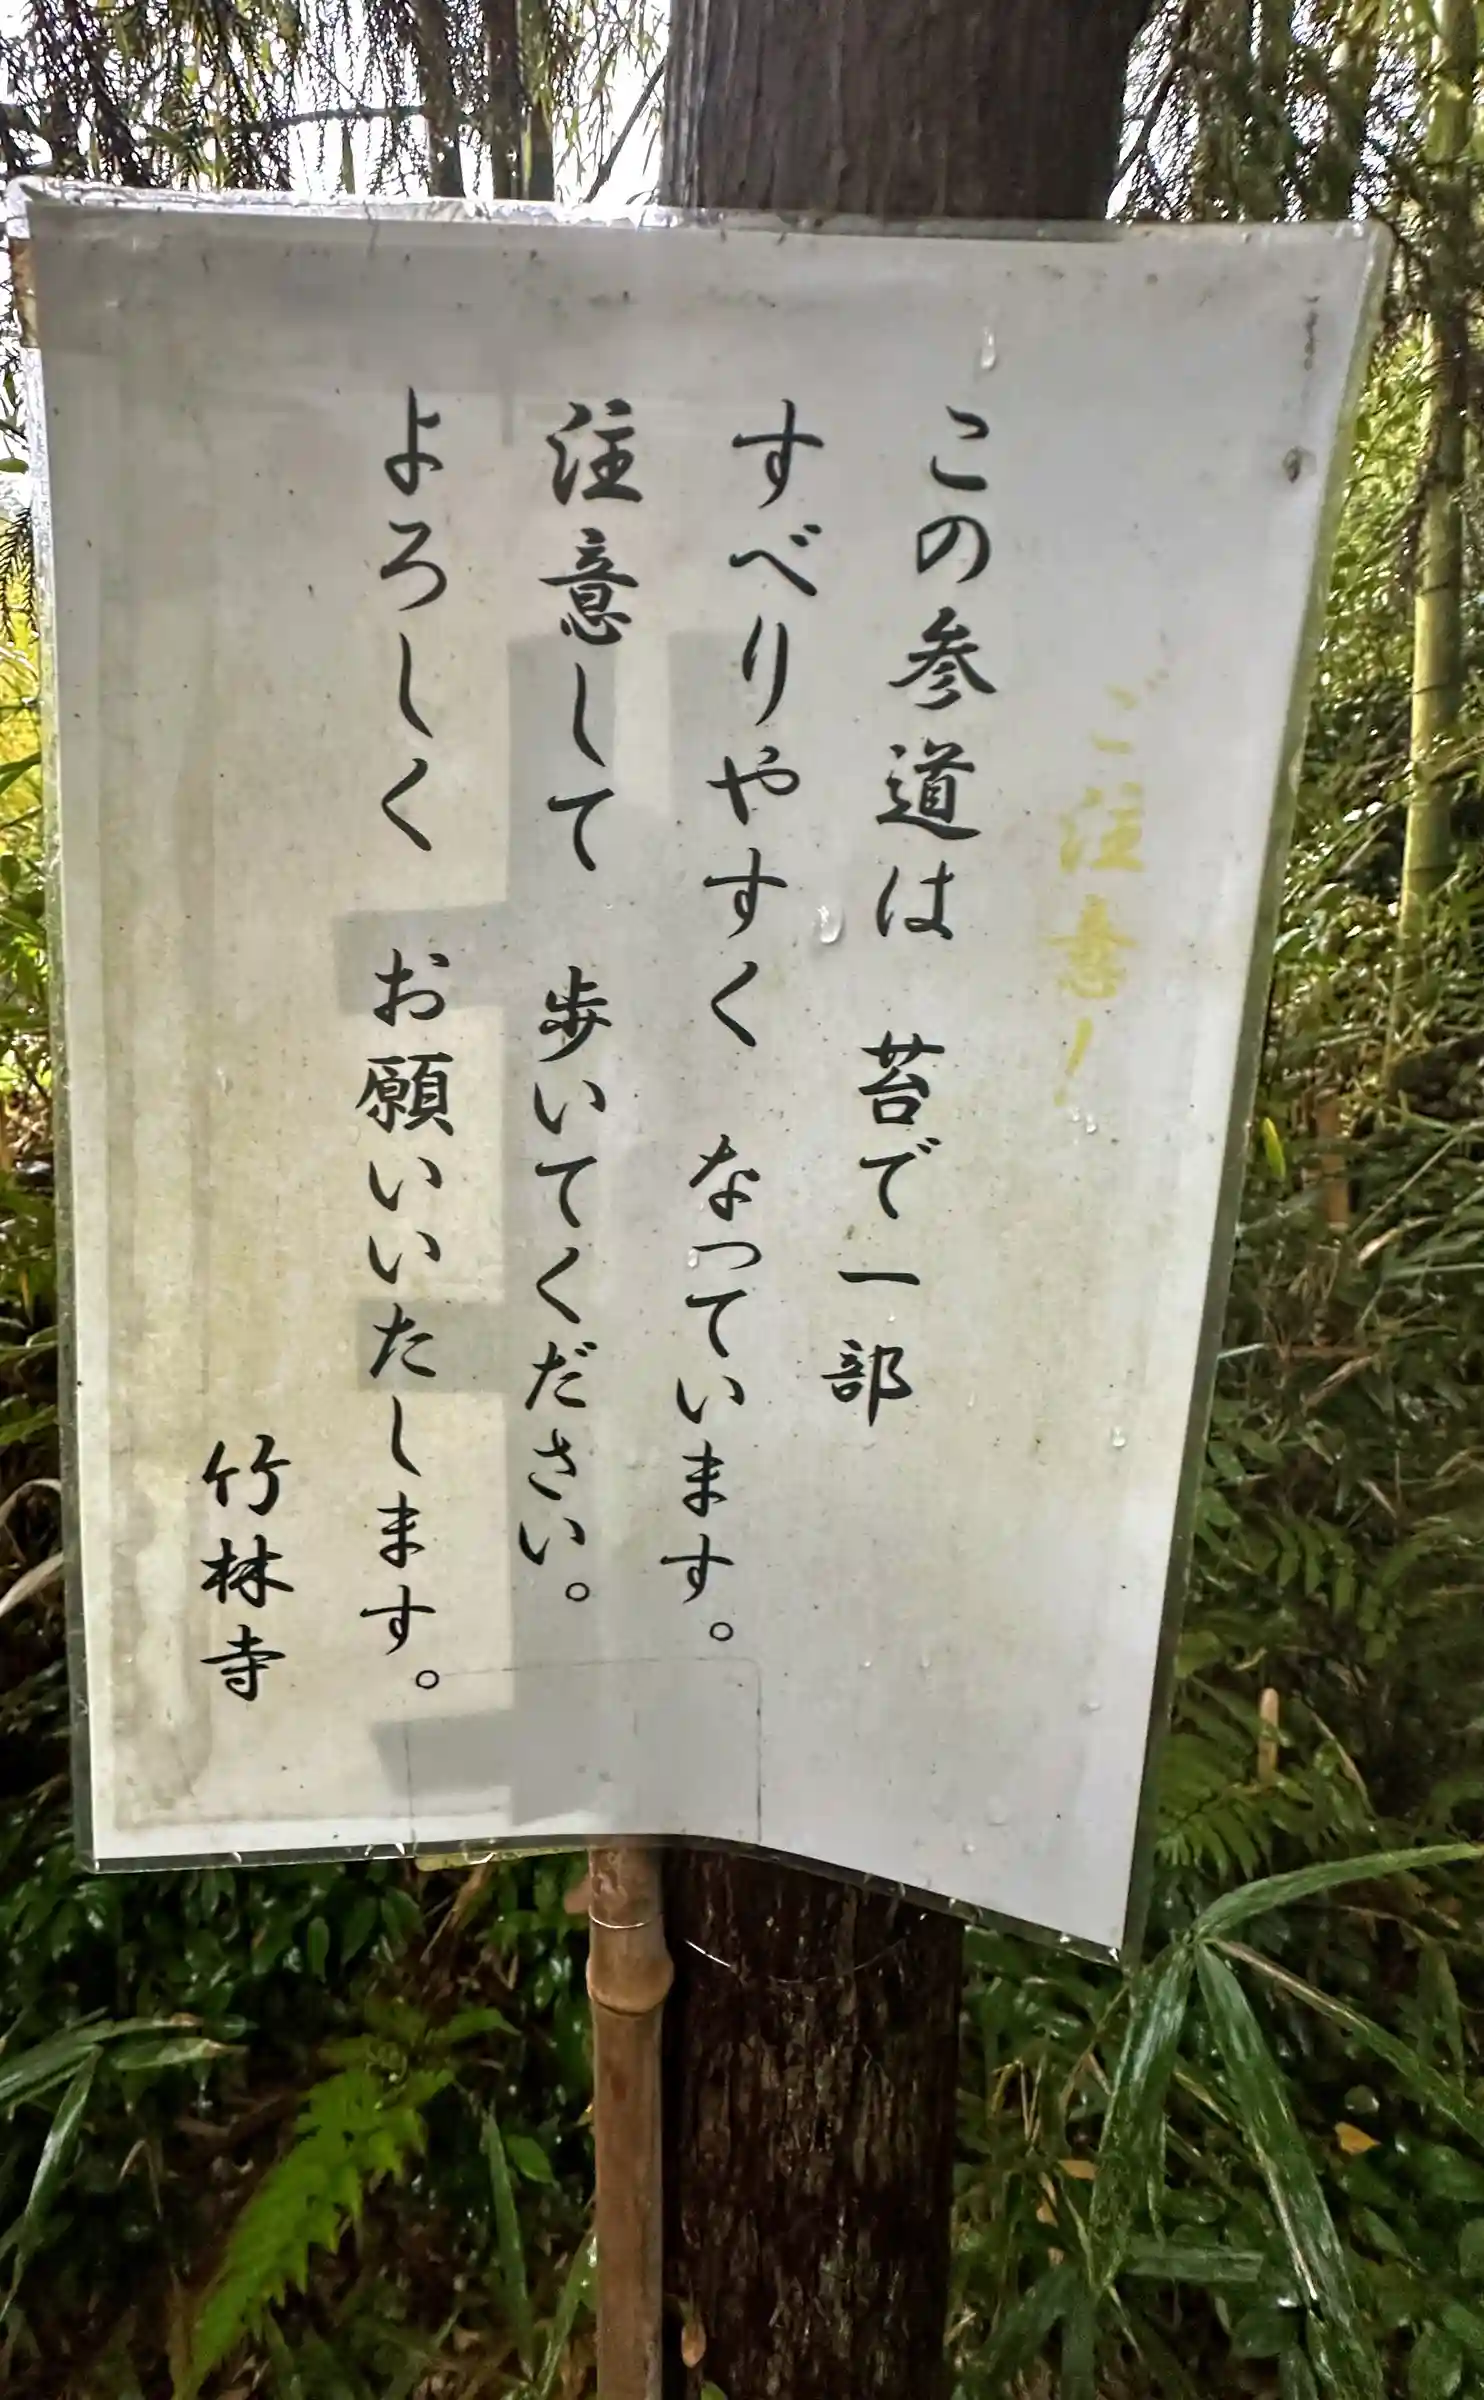 ご注意！
この参道は　苔で一部
すべりやすく　なっています。
注意して　歩いてください。
よろしく　お願いいたします。
竹林寺